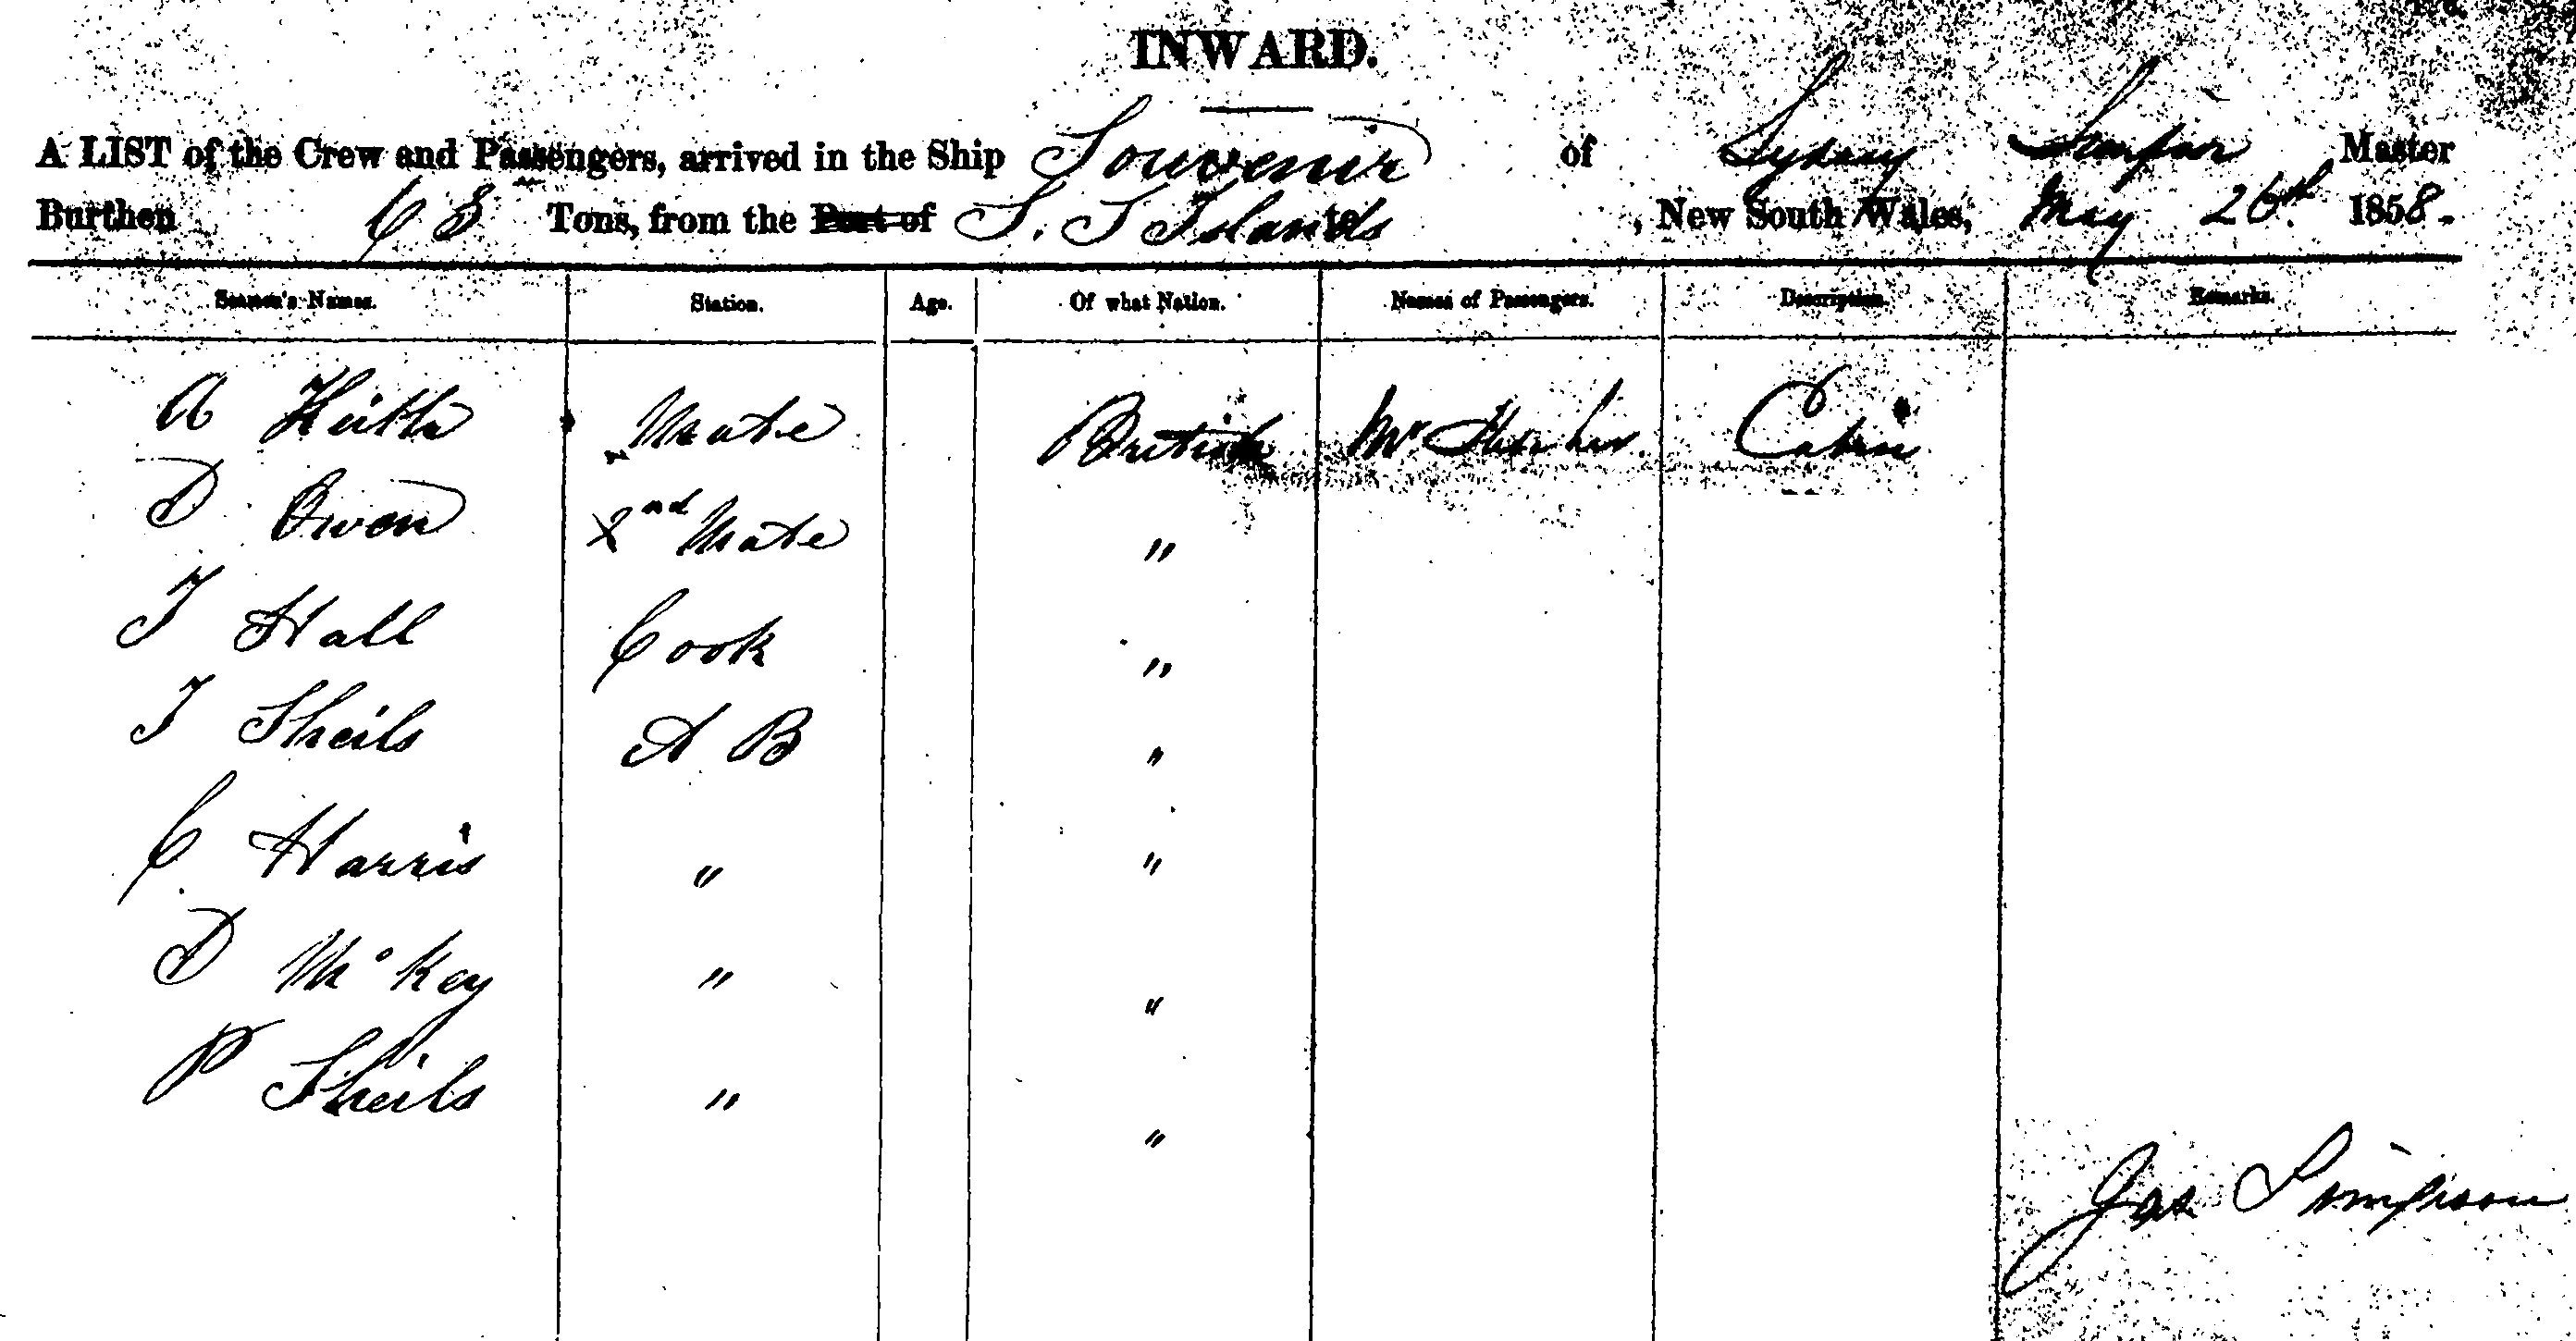 INWARD.
A LIST of the Crew and Passengers, arrived in the Ship Souvenir of Sydney Master
Burthen Tons, from the Port of S. S Islands to , New South Wales, May 26th 1858.
Seamen's Names. Station. Age. Of what Nation. Names of Passengers. Description. Remarks.
A Mate British Mr Cabin
D Owen 2nd Mate "
T Hall Cook "
T Sheils A B "
C Harris " "
D McKey " "
P Sheils " "
Jas Simpson